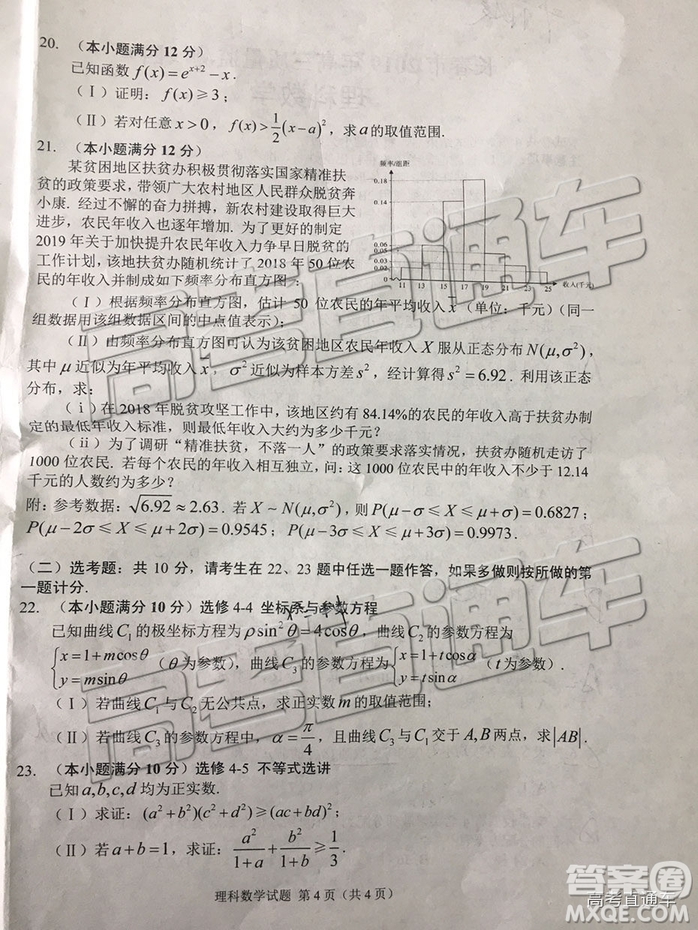 20. （本小题满分 12 分）
已知函数 f(x)=e^{x+2}−x.
（Ⅰ）证明：f(x)≥3；
（Ⅱ）若对任意 x>0，f(x)>\frac{1}{2}(x−a)^2，求 a 的取值范围.
21. （本小题满分 12 分）
某贫困地区扶贫办积极贯彻落实国家精准扶
贫的政策要求，带领广大农村地区人民群众脱贫奔
小康. 经过不懈的奋力拼搏，新农村建设取得巨大
进步，农民年收入也逐年增加. 为了制定
2019 年关于加快提升农民年收入力争早日脱贫的
工作计划，该地扶贫办随机统计了 2018 年 50 位农
民的年收入并制成如下频率分布直方图：
频率/组距
0.18
0.14
0.06
0.05
0.04
0.03
0.02
11 13 15 17 19 21 23 25 收入(千元)
（Ⅰ）根据频率分布直方图，估计 50 位农民的年平均收入 x̄（单位：千元）（同一
组数据用该组数据区间的中点值表示）；
（Ⅱ）由频率分布直方图可认为该贫困地区农民年收入 X 服从正态分布 N(μ,σ²)，
其中 μ 近似为年平均收入 x̄，σ² 近似为样本方差 s²，经计算得 s²=6.92. 利用该正态
分布，求：
（ⅰ）在 2018 年脱贫攻坚工作中，该地区约有 84.14%的农民的年收入高于扶贫办制
定的最低年收入标准，则最低年收入大约为多少千元？
（ⅱ）为了调研“精准扶贫，不落一人”的政策要求落实情况，扶贫办随机走访了
1000 位农民. 若每个农民的年收入相互独立，问：这 1000 位农民中的年收入不少于 12.14
千元的人数约为多少？
附：参考数据：√6.92≈2.63. 若 X∼N(μ,σ²)，则 P(μ−σ≤X≤μ+σ)=0.6827；
P(μ−2σ≤X≤μ+2σ)=0.9545；P(μ−3σ≤X≤μ+3σ)=0.9973.
（二）选考题：共 10 分，请考生在 22、23 题中任选一题作答，如果多做则按所做的第
一题计分.
22. （本小题满分 10 分）选修 4-4 坐标系与参数方程
已知曲线 C₁ 的极坐标方程为 ρsin²θ=4cosθ，曲线 C₂ 的参数方程为
{x=1+mcosθ y=msinθ（θ 为参数），曲线 C₃ 的参数方程为 {x=1+tcosα y=tsinα（t 为参数）.
（Ⅰ）若曲线 C₁ 与 C₂ 无公共点，求正实数 m 的取值范围；
（Ⅱ）若曲线 C₃ 的参数方程中，α=\frac{π}{4}，且曲线 C₃ 与 C₁ 交于 A,B 两点，求|AB|.
23. （本小题满分 10 分）选修 4-5 不等式选讲
已知 a,b,c,d 均为正实数.
（Ⅰ）求证：(a²+b²)(c²+d²)≥(ac+bd)²；
（Ⅱ）若 a+b=1，求证：\frac{a²}{1+a}+\frac{b²}{1+b}≥\frac{1}{3}.
理科数学试题 第 4 页（共 4 页）
高考直通车
高考直通车
答案圈
高考直通车
MXQE.COM